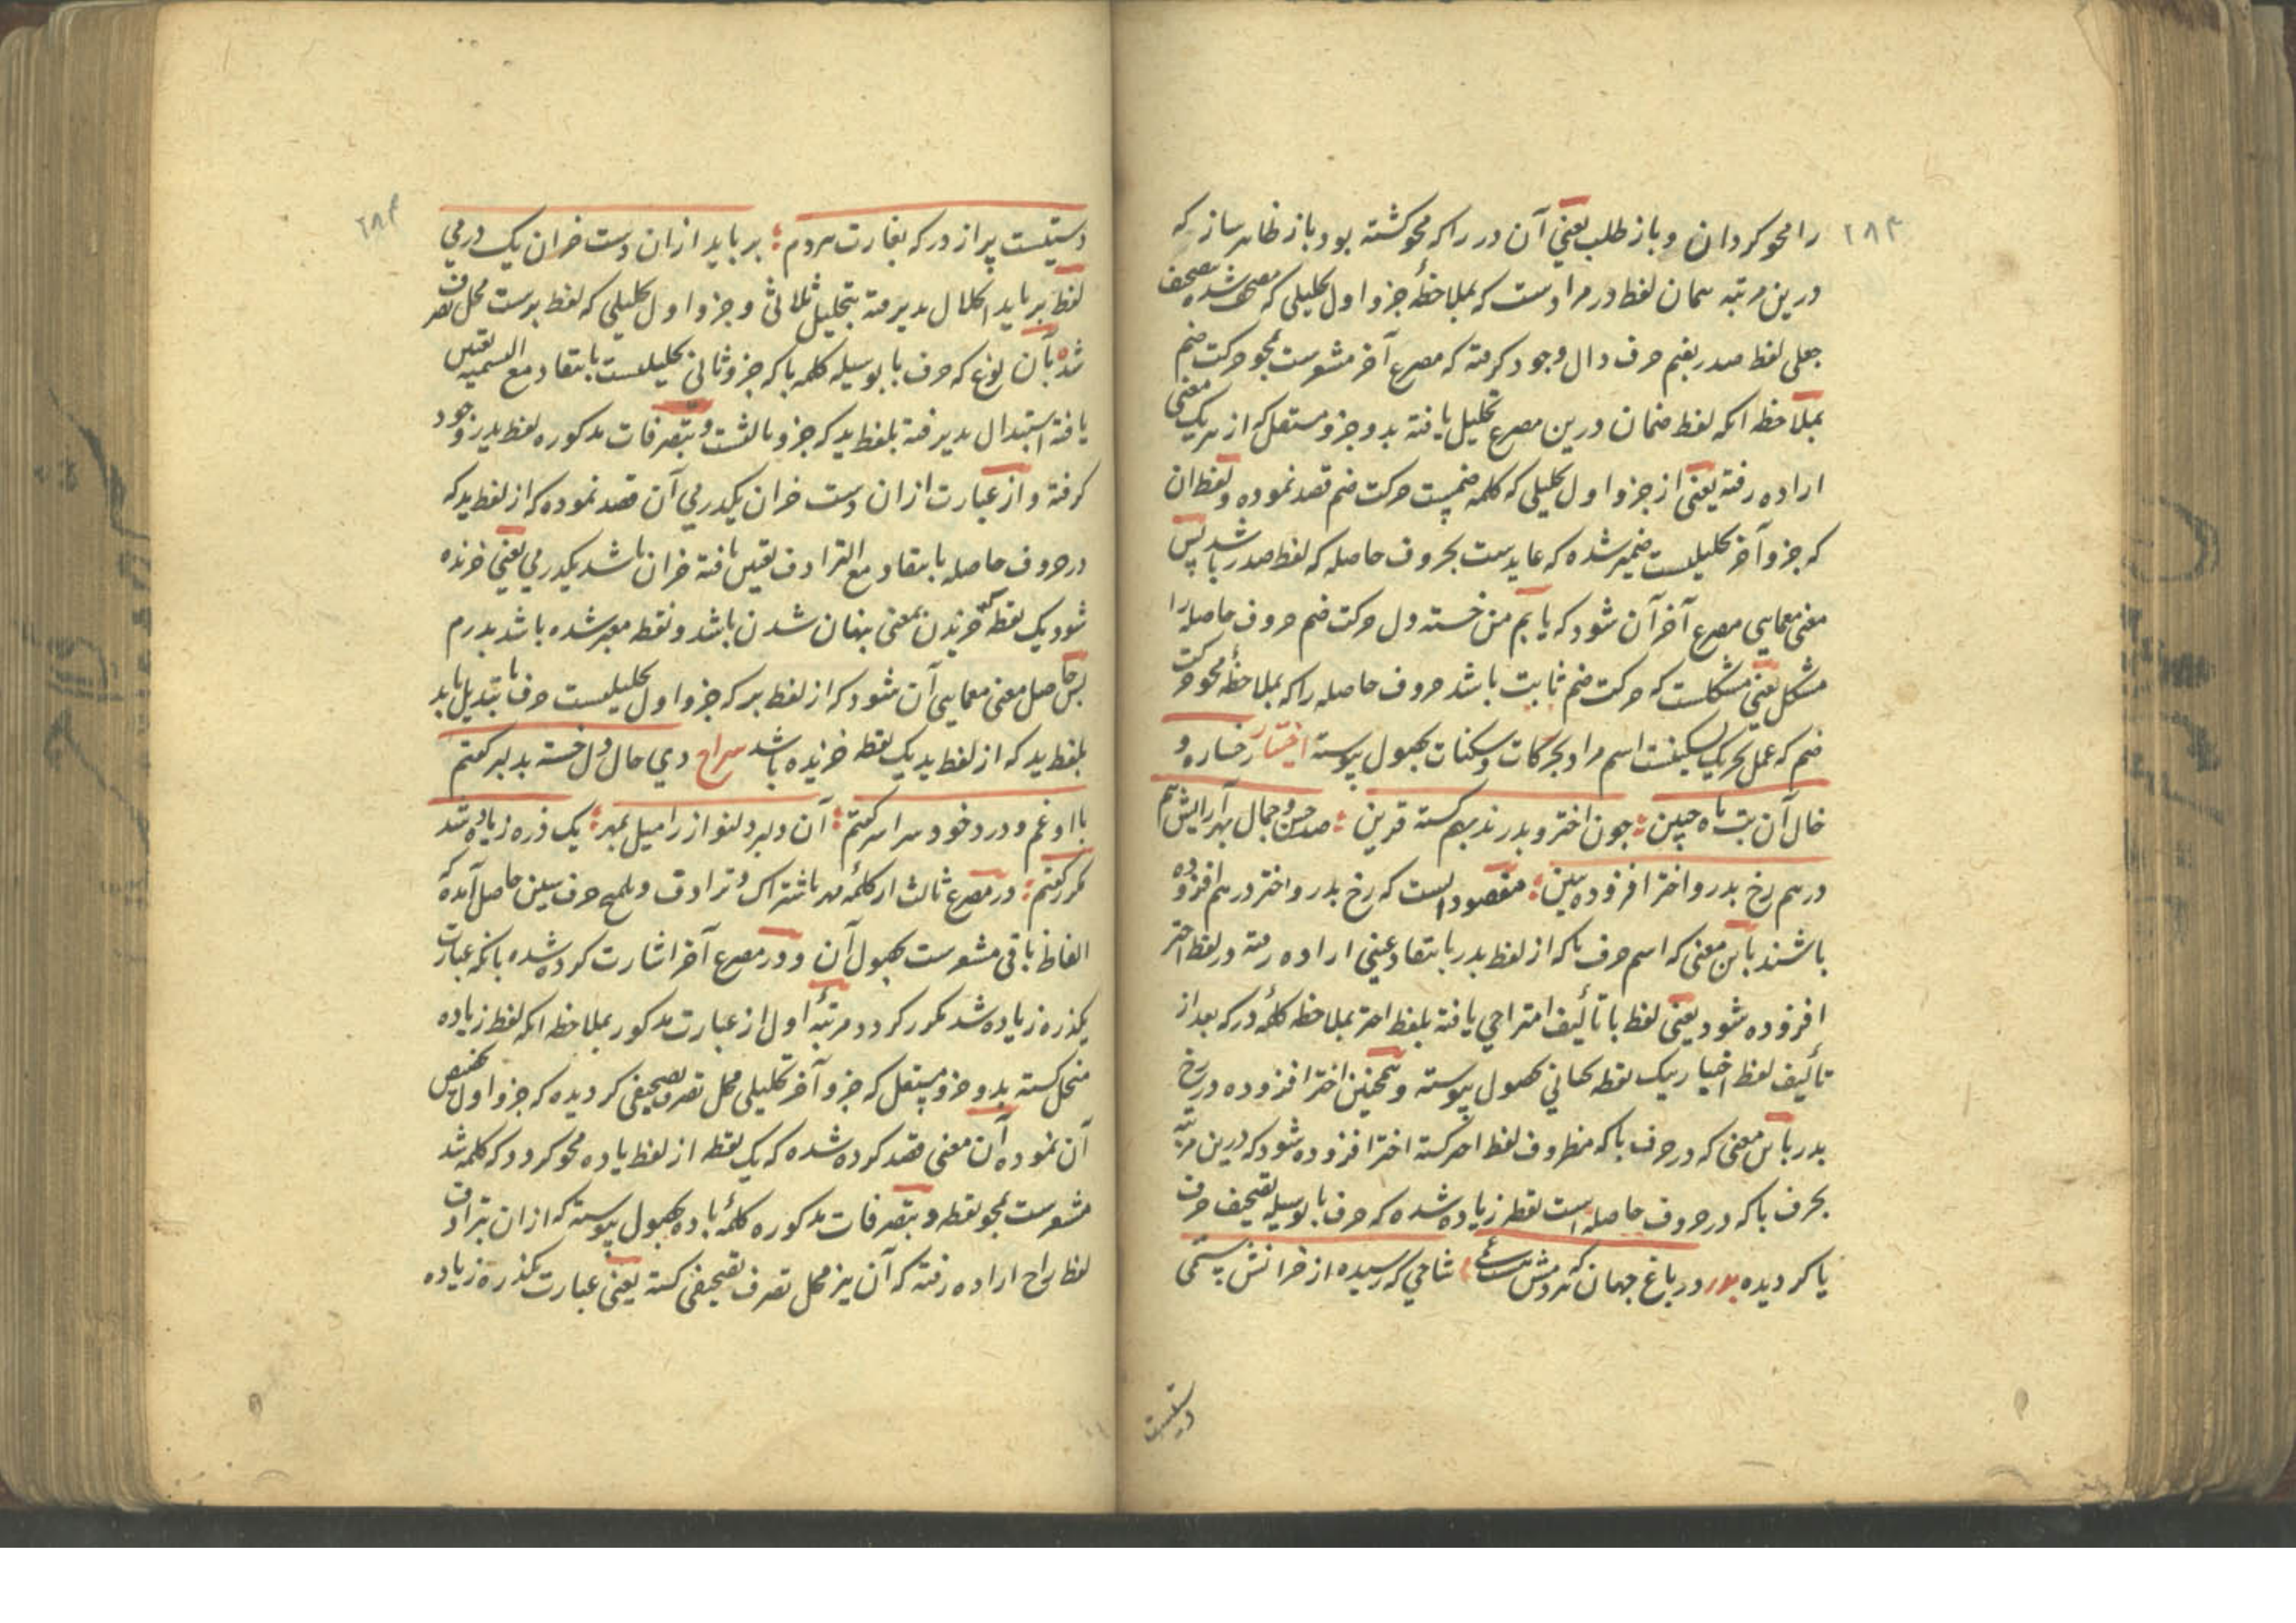 ۲۸۳
را محو کردان و باز طلب یعنی آن در را که محو کشته بود باز ظاهر ساز که
درین مرتبه همان لفظ در مرادست که بملاحظهٔ جزو اول تحلیلی که شده بتصحیف
جعلی لفظ صدر بضم حرف دال وجود کرفته که مصرع آخر مشعرست بمحو حرکت ضم
بملاحظه انکه لفظ ضمان درین مصرع تحلیل یافته بدو جزو مستقل که از هریک معنی
اراده رفته یعنی از جزو اول تحلیلی که کلمه ضمیست حرکت ضم قصد نموده و لفظ ان
که جزو آخر تحلیلیست ضمیر شده که عایدست بحروف حاصله که لفظ صدر باشد پس
معنی معمایی مصرع آخر آن شود که یابم من خسته دل حرکت ضم حروف حاصله را
مشکل یعنی مشکلست که حرکت ضم ثابت باشد حروف حاصله را که بملاحظهٔ محو حرکت
ضم که عمل تحریک تسکینست اسم مراد بحرکات و سکنات بحصول پیوسته اختیار رخساره و
خال آن بت ماه جبین جون اختر و بدرند بهم کشته قرین صد حسن و جمال بهر آرایش هم
در هم رخ بدر و اختر افزوده ببین مقصود انست که رخ بدر و اختر در هم افزوده
باشند باین معنی که اسم حرف با که از لفظ بدر بانتقاد عینی اراده رفته در لفظ اختر
افزوده شود یعنی لفظ با تألیف امتزاجی یافته بلفظ اختر بملاحظه کلمهٔ در که بعد از
تألیف لفظ اختیار بیک نقطه تحتانی بحصول پیوسته و همچنین اختر افزوده در رخ
بدر باین معنی که در حرف با که مظروف لفظ اختر کشته اختر افزوده شود که درین مرتبه
بحرف با که در حروف حاصله است نقطه زیاده شده که حرف با بوسیله تصحیف حرف
یا کردیده بدر در باغ جهان که شاخی که رسیده از خزانش ستمی
دستیست
۲۸۴
دستیست پر از در که بغارت مردم برباید ازان دست خزان یک درمی
لفظ برباید انحلال پذیرفته بتحلیل ثلاثی و جزو اول تحلیلی که لفظ برست محل تصرف
شده بآن نوع که حرف با بوسیله کلمه با که جزو ثانی تحلیلیست بانتقاد مع التسمیه تعین
یافته استبدال پذیرفته بلفظ ید که جزو ثالثست و بتصرفات مذکوره لفظ یدر وجود
کرفته و از عبارت ازان دست خزان یکدرمی آن قصد نموده که از لفظ ید که
در حروف حاصله بانتقاد مع الترادف تعین یافته خزان باشد یکدرمی یعنی خزنده
شود یک نقطه که خزیدن بمعنی پنهان شدن باشد و نقطه معبر شده باشد بدرم
پس حاصل معنی معمایی آن شود که از لفظ بر که جزو اول تحلیلیست حرف با تبدیل یابد
بلفظ ید که از لفظ ید یک نقطه خزیده باشد سراج دی حال دل خسته بدلبر کفتم
با او غم و درد خود سراسر کفتم آن دلبر دلنواز را میل بمهر یک ذره زیاده شد
مکرر کفتم در مصرع ثالث از کلمهٔ مهر باشتراک و ترادف و تلمیح حرف سین حاصل آمده که
الفاظ باقی مشعرست بحصول آن و در مصرع آخر اشارت کرده شده بانکه عبارت
یکذره زیاده شد مکرر کردد مرتبهٔ اول از عبارت مذکور بملاحظه انکه لفظ زیاده
منحل کشته بدو جزو مستقل که جزو آخر تحلیلی محل تصرف تصحیفی کردیده که جزو اول تخصیص
آن نموده آن معنی قصد کرده شده که یک نقطه از لفظ یاده محو کردد که کلمه شد
مشعرست بمحو نقطه و بتصرفات مذکوره کلمهٔ باده بحصول پیوسته که ازان بترادف
لفظ راح اراده رفته که آن نیز محل تصرف تصحیفی کشته یعنی عبارت یکذره زیاده